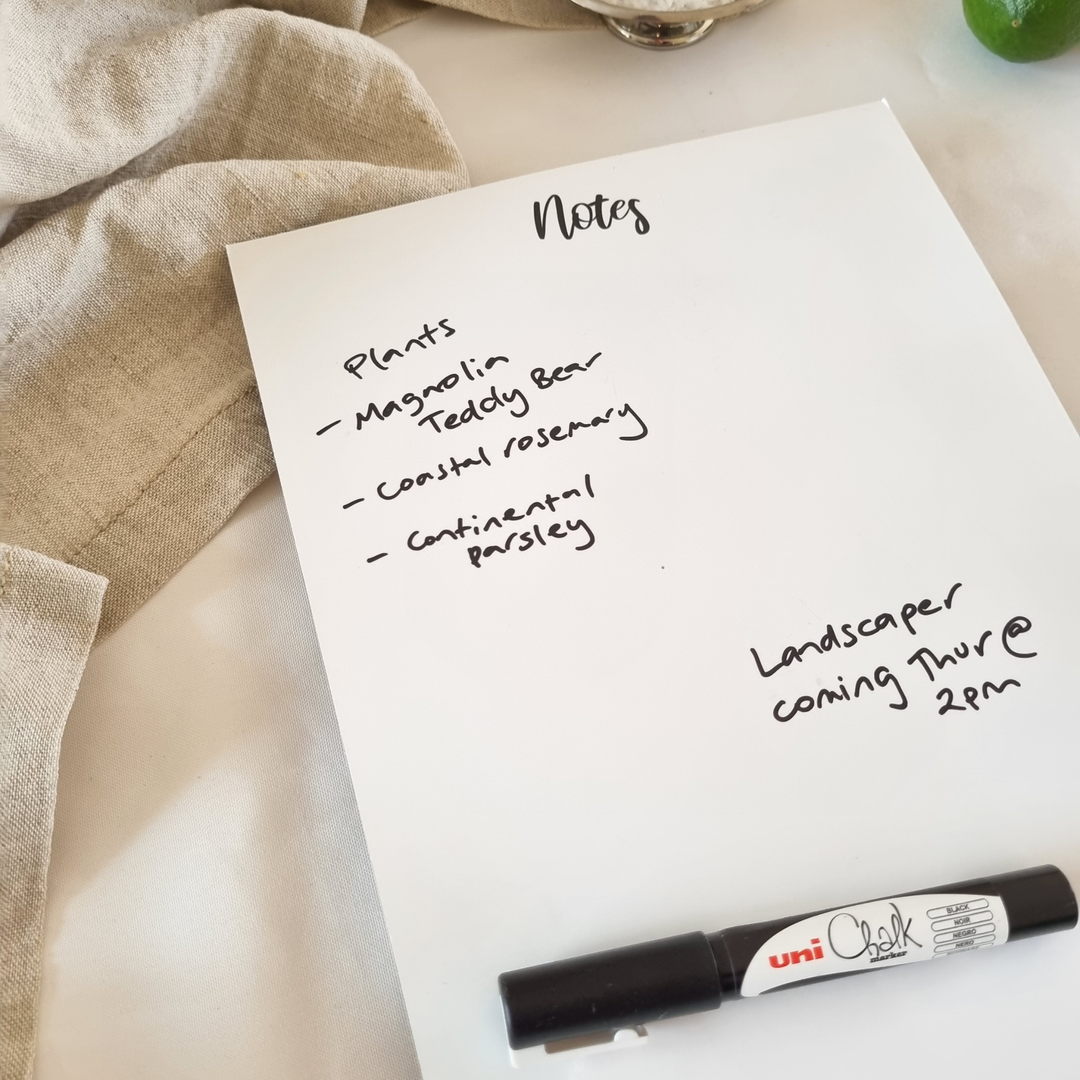 Notes
Plants
- Magnolia
Teddy Bear
- Coastal rosemary
- Continental
parsley
Landscaper
coming Thur @
2pm
uni Chalk
marker
BLACK
NOIR
NEGRO
NERO